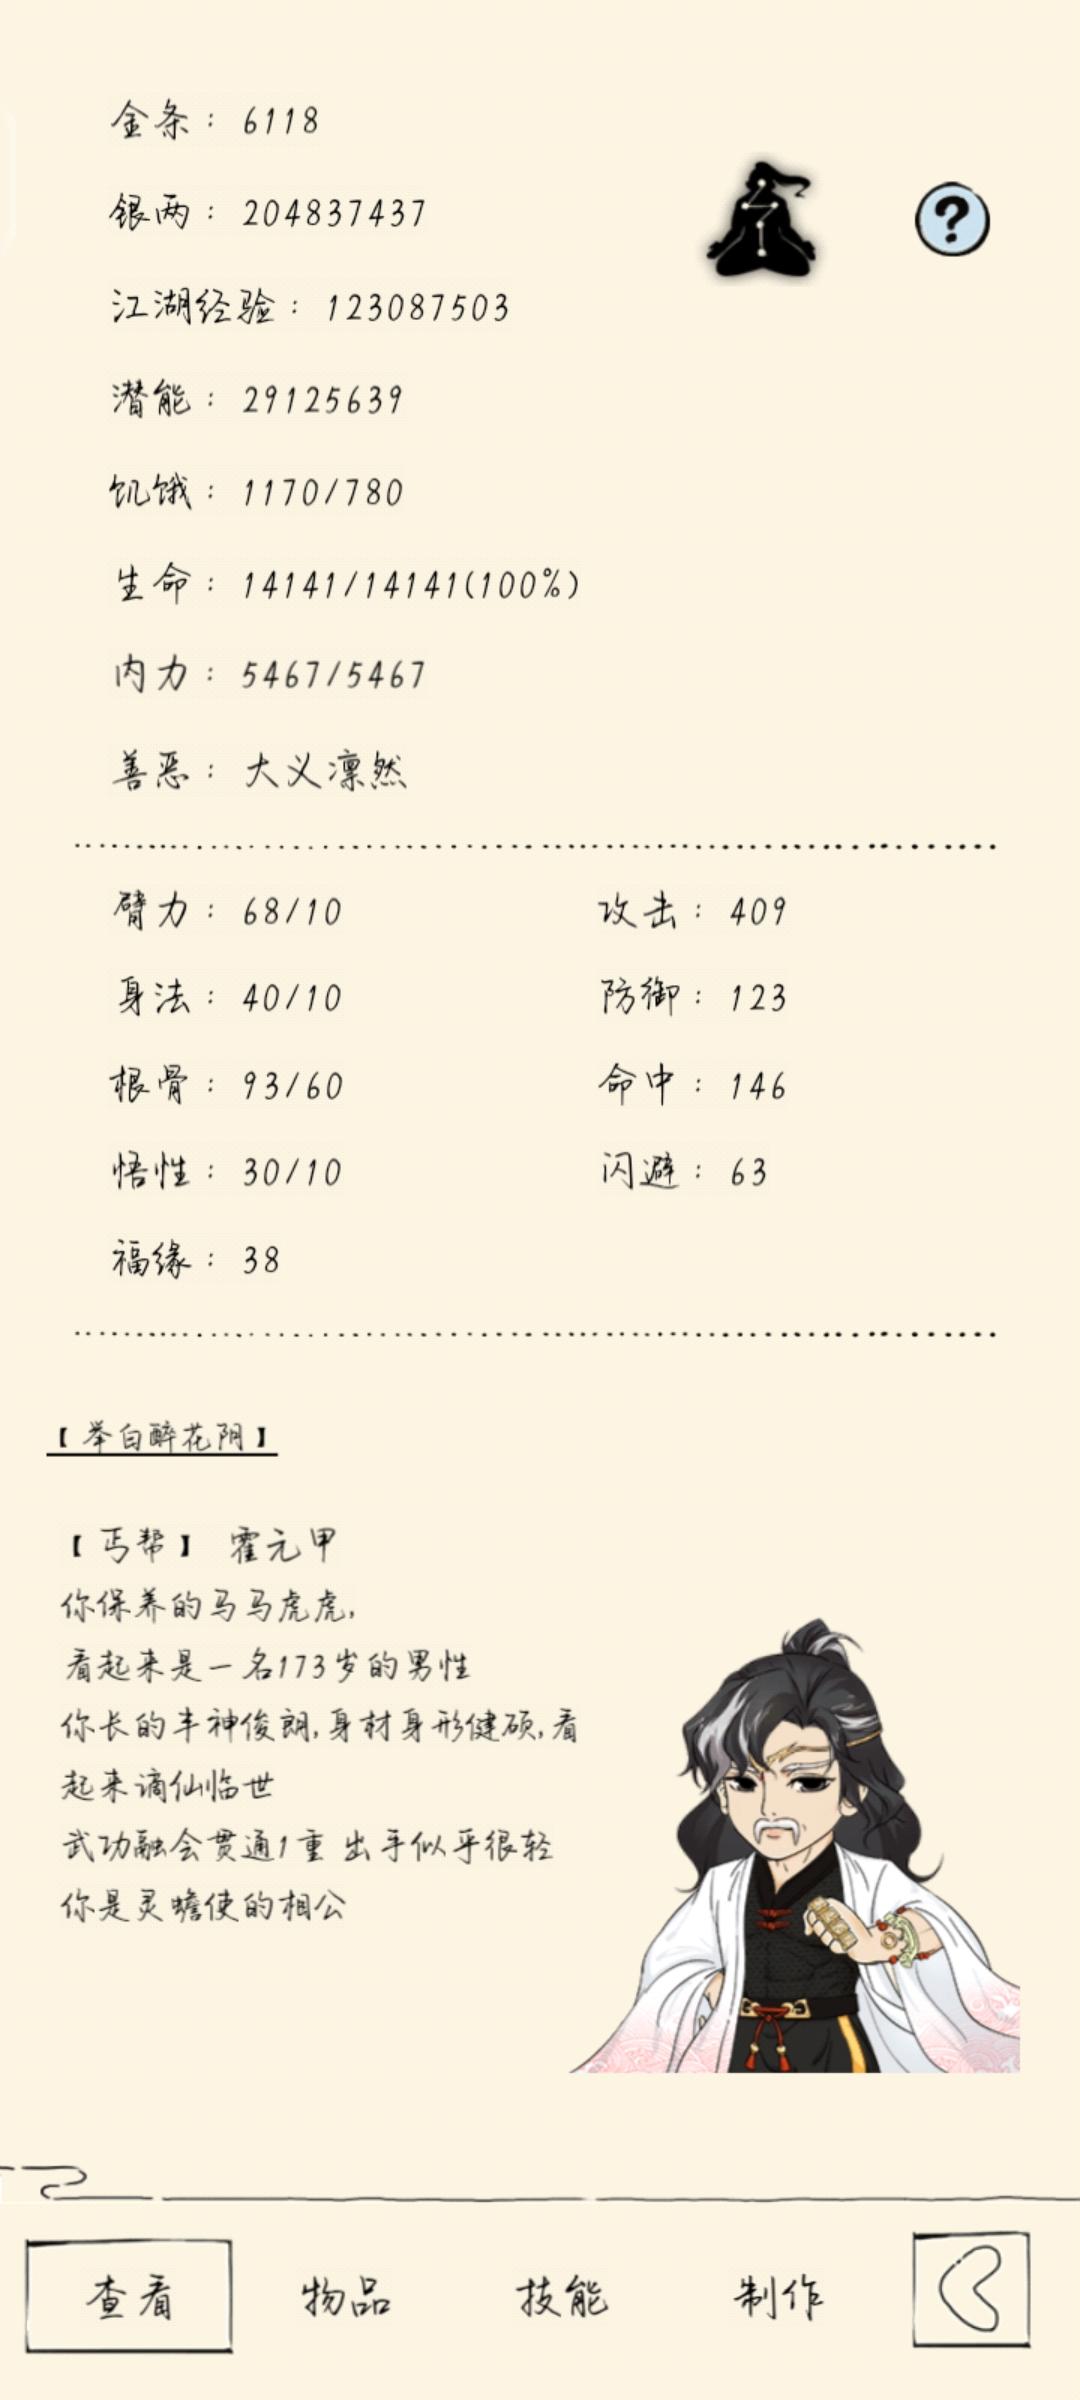 金条：6118
银两：204837437
江湖经验：123087503
潜能：29125639
饥饿：1170/780
生命：14141/14141(100%)
内力：5467/5467
善恶：大义凛然
臂力：68/10 攻击：409
身法：40/10 防御：123
根骨：93/60 命中：146
悟性：30/10 闪避：63
福缘：38
【举白醉花阴】
【丐帮】 霍元甲
你保养的马马虎虎，
看起来是一名173岁的男性
你长的丰神俊朗，身材身形健硕，看
起来谪仙临世
武功融会贯通1重 出手似乎很轻
你是灵蟾使的相公
查看 物品 技能 制作